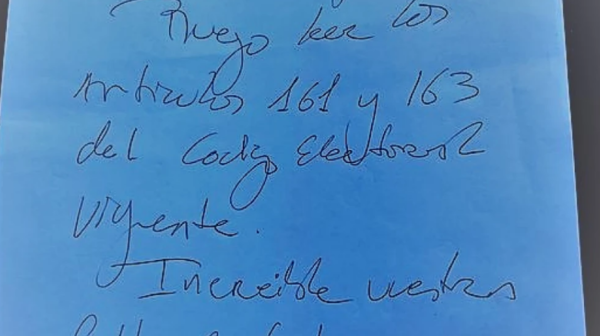 Ruego leer los
Articulos 161 y 163
del Codigo Electoral
vigente.
Increible vuestras